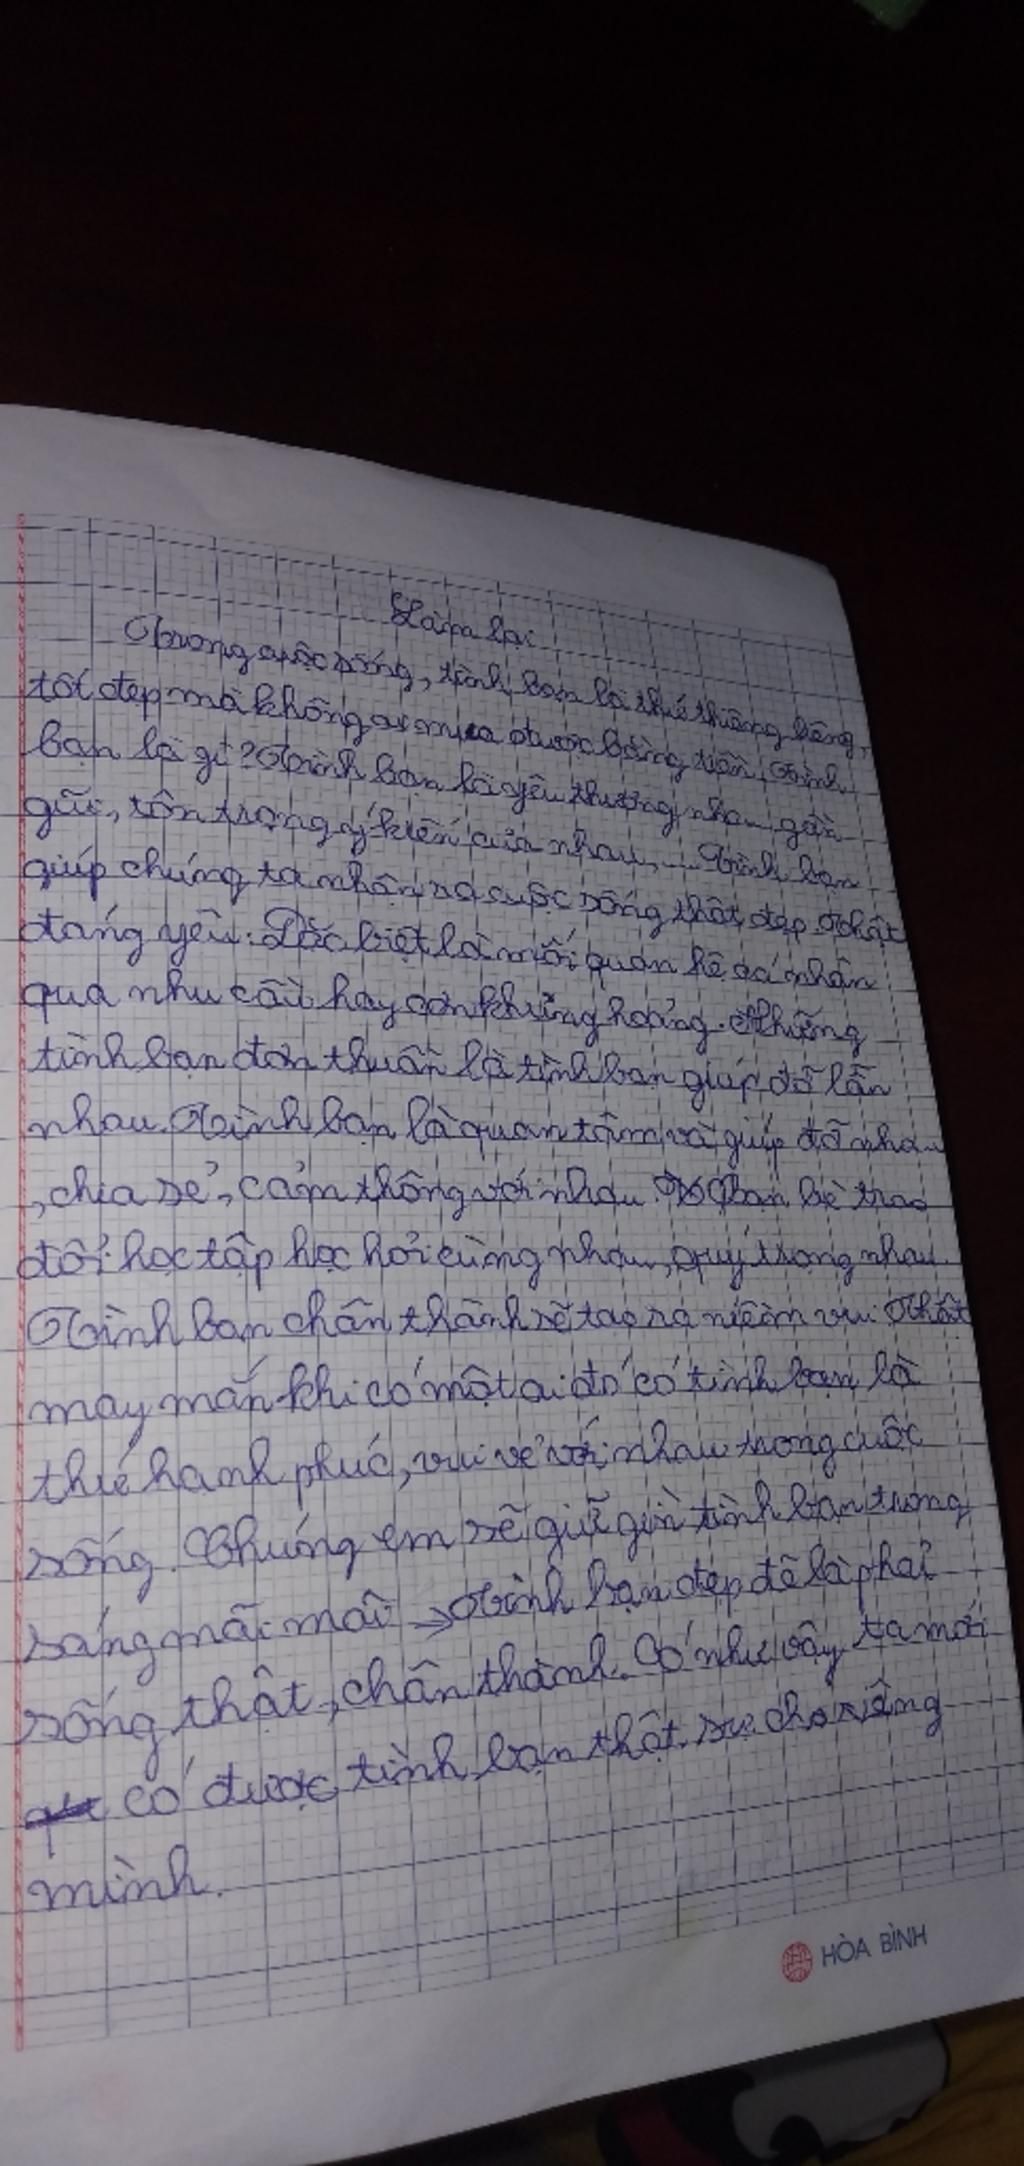 Làm lại
Trong cuộc sống, tình bạn là thứ thiêng liêng,
tốt đẹp mà không ai mua được bằng tiền. Tình
bạn là gì? Tình bạn là yêu thương nhau, gần
gũi, tôn trọng ý kiến của nhau,... Tình bạn
giúp chúng ta nhận ra cuộc sống thật đẹp. Thật
đáng yêu. Đặc biệt là mối quan hệ cá nhân
qua nhu cầu hay cơn khủng hoảng. Những
tình bạn đơn thuần là tình bạn giúp đỡ lẫn
nhau. Tình bạn là quan tâm và giúp đỡ nhau
, chia sẻ, cảm thông với nhau. Bạn bè trao
đổi học tập học hỏi cùng nhau, quý trọng nhau.
Tình bạn chân thành sẽ tạo ra niềm vui. Thật
may mắn khi có một ai đó có tình bạn là
thứ hanh phúc, vui vẻ với nhau trong cuộc
sống. Chúng em sẽ giữ gìn tình bạn trong
sáng mãi mãi → Tình bạn đẹp đẽ là phải
sống thật, chân thành. Có như vậy ta mới
có được tình bạn thật sự cho riêng
mình.
HÒA BÌNH